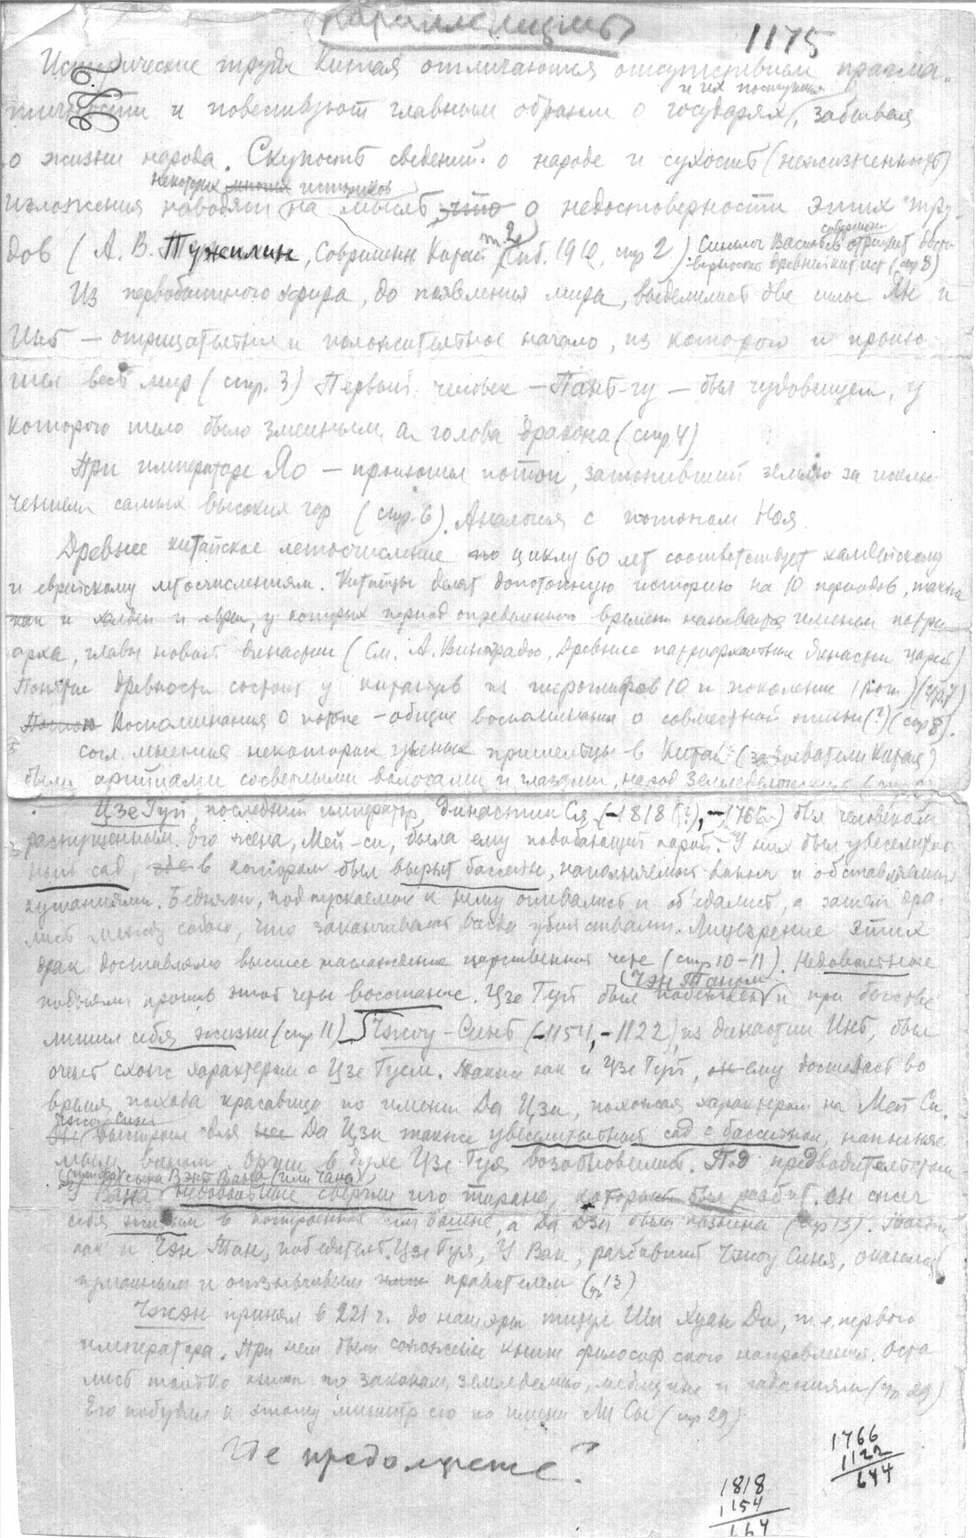 Параллелизмы
1175
Исторические труды Китая отличаются отсутствием прагма-
и их поступках
тичности и повествуют главным образом о государях, забывая
о жизни народа. Скупость сведений о народе и сухость (нежизненность)
некоторых историков
изложения наводят на мысль что о недостоверности этих тру-
дов (А. В. Тужилин, Современ Китай т 2 Спб. 1910, стр 2) Синолог Васильев отрицает досто-
совершенно
верность древней кит ист (стр 8)
Из первобытного эфира, до появления мира, выделились две силы Ян и
Инь — отрицательное и положительное начало, из которого и произо-
шел весь мир (стр. 3) Первый человек — Пань-гу — был чудовищем, у
которого тело было змеиным, а голова дракона (стр 4)
При императоре Яо — произошел потоп, затопивший землю за исклю-
чением самых высоких гор (стр. 6). Аналогия с потопом Ноя.
Древнее китайское летосчисление по циклу 60 лет соответствует халдейскому
и еврейскому летосчислениям. Китайцы делят допотопную историю на 10 периодов, также
как и халдеи и евреи, у которых период определенного времени называется именем патри-
арха, главы новой династии (См. А. Виноградов, Древние патриархальные династии царей)
Понятие древности состоит у китайцев из иероглифов 10 и поколение (стр 7)
Воспоминания о потопе — общие воспоминания о совместной жизни (?) (стр 8).
согл. мнения некоторых ученых пришельцы в Китай (завоеватели Китая)
были арийцами со светлыми волосами и глазами, народ земледельческий
Цзе Гуй, последний император династии Ся (–1818 (?), –1766) был человеком
распущенным. Его жена, Мей-си, была ему подобающей парой. У них был увеселитель-
ный сад, в котором был вырыт бассейн, наполняемый вином и обставляемый
кушаниями. Бедняки, подпускаемые к нему опивались и объедались, а затем дра-
лись между собою, что заканчивалось всегда убийствами. Лицезрение этих
драк доставляло высшее наслаждение царственной чете (стр 10-11). Недовольные
Чэн Таном
подняли против этой четы восстание. Цзе Гуй был и при бегстве
лишил себя жизни (стр 11) Чжоу-Синь (–1154, –1122) из династии Инь, был
очень схож характером с Цзе Гуем. Также как и Цзе Гуй, ему досталась во
время похода красавица по имени Да Цзи, похожая характером на Мей Си.
Чжоу Синь
выстроил для нее Да Цзи также увеселительный сад с бассейном, наполняе-
мым вином. Оргии в духе Цзе Гуя возобновились. Под предводительством
сына Вэнь Вана (или Чана)
У Вана недовольные свергли его тирана, который был разбит. Он сжег
себя живым в построенной им башне, а Да Дзи была казнена (стр 13). Также
как и Чэн Тан, победитель Цзе Гуя, У Ван, разбивший Чжоу Синя, оказался
гуманным и отзывчивым правителем (стр 13)
Чжэн принял в 221 г. до наш эры титул Ши Хуан Ди, т.е. первого
императора. При нем были сожжены книги философского направления. Оста-
лись только книги по законам, земледелию, медицине и гаданиям (стр 29)
Его побудил к этому министр его по имени Ли Сы (стр 29)
Где продолжение?
1766
1122
644
1818
1154
664